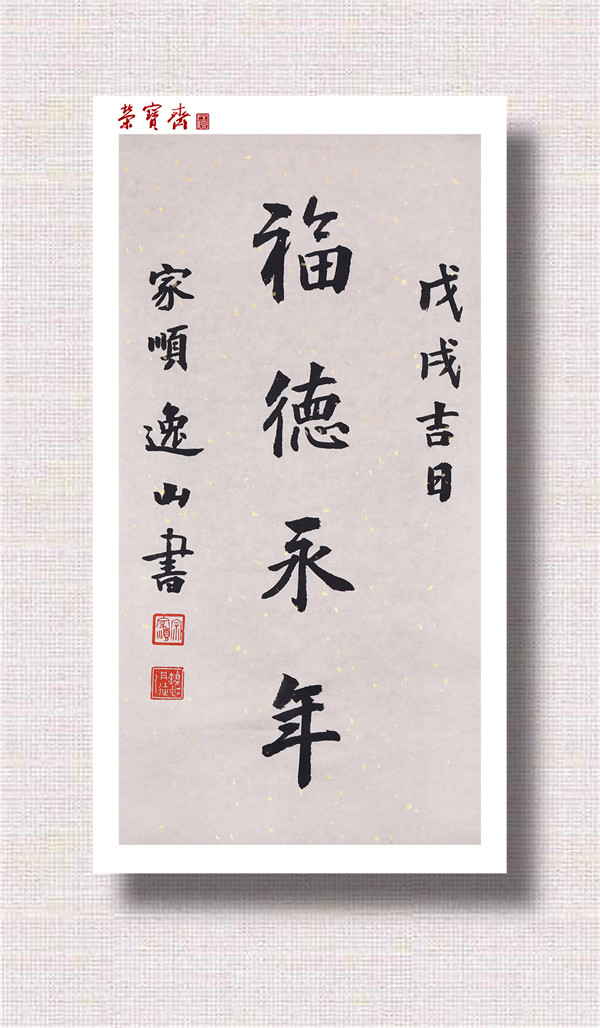 榮寶齋
戊戌吉日
福德永年
家順逸山書